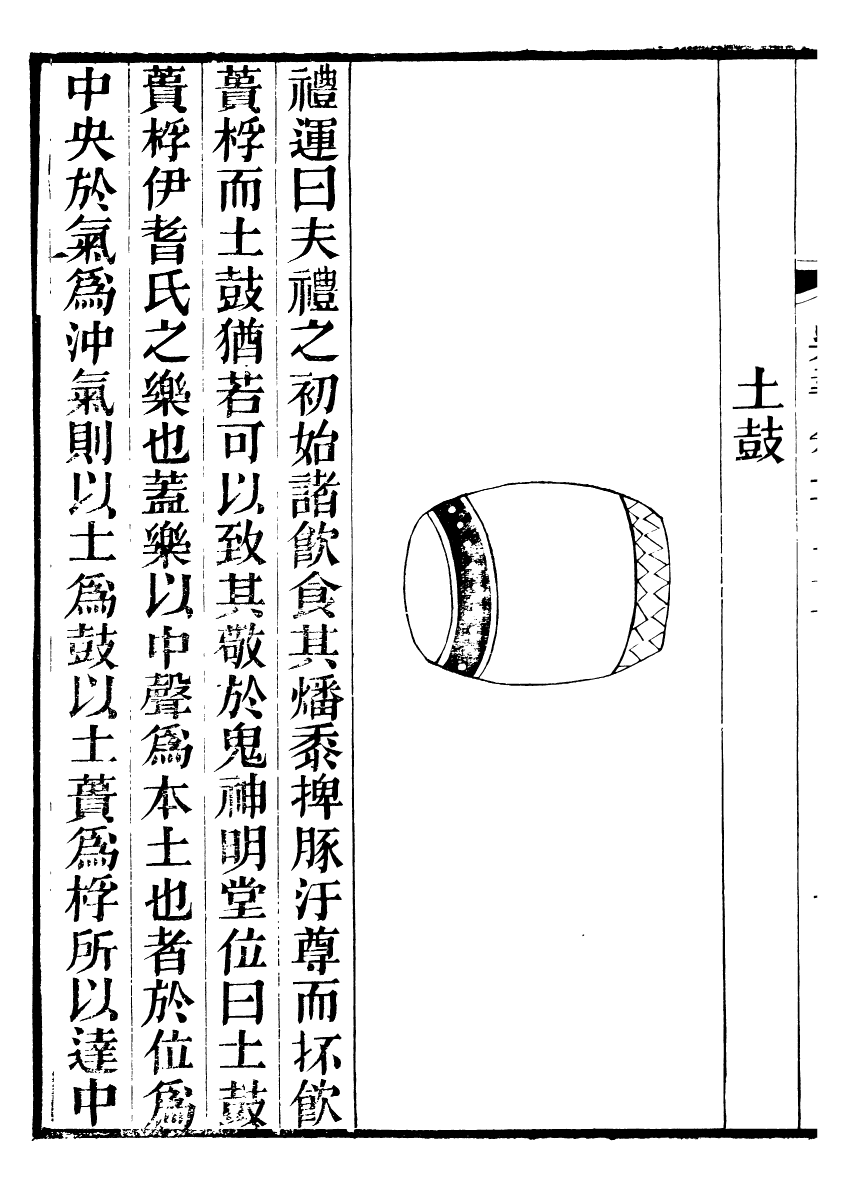 土鼓
禮運曰夫禮之初始諸飮食其燔黍捭豚汙尊而抔飮
蕢桴而土鼓猶若可以致其敬於鬼神明堂位曰土鼓
蕢桴伊耆氏之樂也蓋樂以中聲爲本土也者於位爲
中央於氣爲沖氣則以土爲鼓以土蕢爲桴所以達中